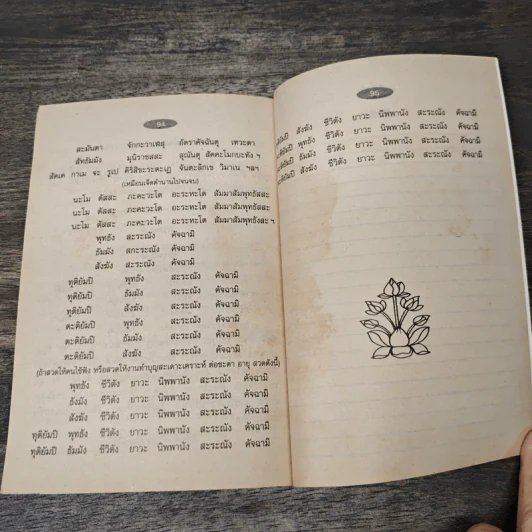 94
สะมันตา จักกะวาเฬสุ อัตราคัจฉันตุ เทวะตา
สัทธัมมัง มุนิราชสสะ สุณันตุ สัคคะโมกขะทัง ฯ
สัคเค กาเม จะ รูเป คิริสิขะระตะเฏ จันตะลิกเข วิมาเน ฯลฯ
(เหมือนเจ็ดตำนานไปจนจบ)
นะโม ตัสสะ ภะคะวะโต อะระหะโต สัมมาสัมพุทธัสสะ
นะโม ตัสสะ ภะคะวะโต อะระหะโต สัมมาสัมพุทธัสสะ
นะโม ตัสสะ ภะคะวะโต อะระหะโต สัมมาสัมพุทธัสสะ ฯ
พุทธัง สะระณัง คัจฉามิ
ธัมมัง สะระณัง คัจฉามิ
สังฆัง สะระณัง คัจฉามิ
ทุติยัมปิ พุทธัง สะระณัง คัจฉามิ
ทุติยัมปิ ธัมมัง สะระณัง คัจฉามิ
ทุติยัมปิ สังฆัง สะระณัง คัจฉามิ
ตะติยัมปิ พุทธัง สะระณัง คัจฉามิ
ตะติยัมปิ ธัมมัง สะระณัง คัจฉามิ
ตะติยัมปิ สังฆัง สะระณัง คัจฉามิ
(ถ้าสวดให้คนไข้ฟัง หรือสวดให้งานทำบุญสะเดาะเคราะห์ ต่อชะตา อายุ สวดดังนี้)
พุทธัง ชีวิตัง ยาวะ นิพพานัง สะระณัง คัจฉามิ
ธัมมัง ชีวิตัง ยาวะ นิพพานัง สะระณัง คัจฉามิ
สังฆัง ชีวิตัง ยาวะ นิพพานัง สะระณัง คัจฉามิ
ทุติยัมปิ พุทธัง ชีวิตัง ยาวะ นิพพานัง สะระณัง คัจฉามิ
ทุติยัมปิ ธัมมัง ชีวิตัง ยาวะ นิพพานัง สะระณัง คัจฉามิ
95
สังฆัง ชีวิตัง ยาวะ นิพพานัง สะระณัง คัจฉามิ
พุทธัง ชีวิตัง ยาวะ นิพพานัง สะระณัง คัจฉามิ
ธัมมัง ชีวิตัง ยาวะ นิพพานัง สะระณัง คัจฉามิ
สังฆัง ชีวิตัง ยาวะ นิพพานัง สะระณัง คัจฉามิ